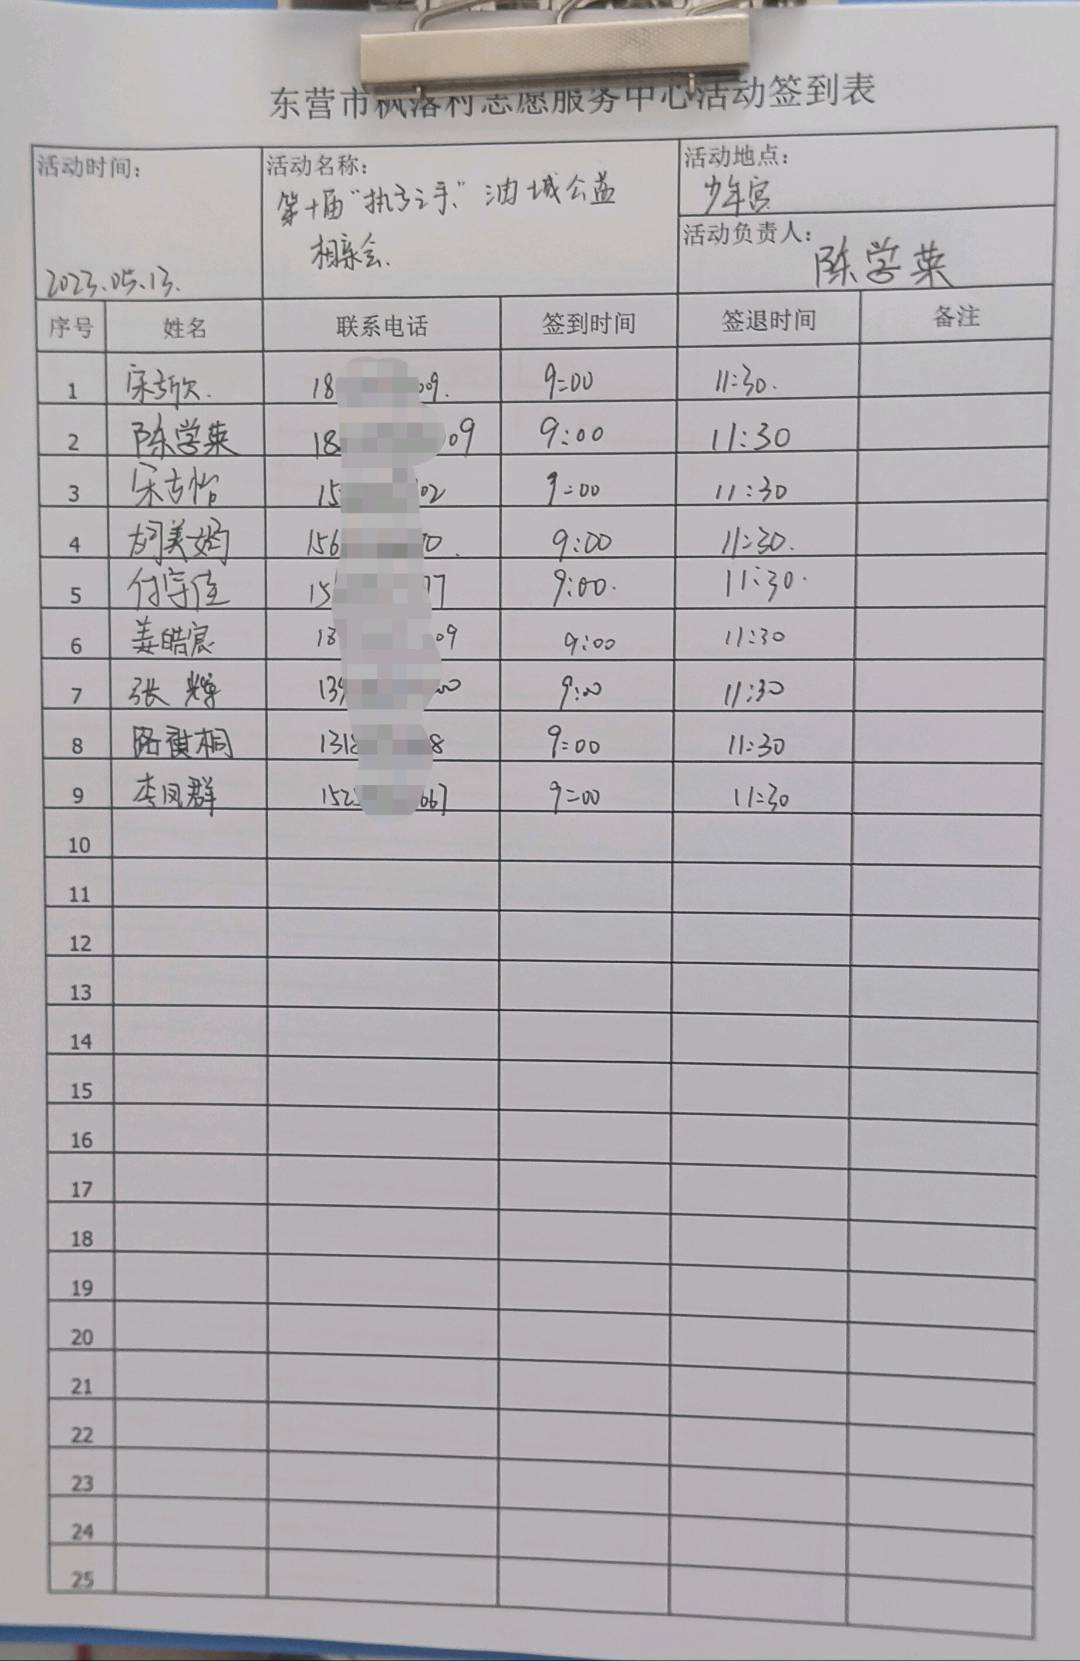 东营市枫落村志愿服务中心活动签到表
活动时间：
2023.05.13.
活动名称：
第十届“执子之手”油城公益
相亲会.
活动地点：
少年宫
活动负责人：陈学英
序号 姓名 联系电话 签到时间 签退时间 备注
1 18 09. 9:00 11:30.
2 陈学英 18 09 9:00 11:30
3 15 02 9:00 11:30
4 156 70. 9:00 11:30.
5 付宇佳 15 77 9:00. 11:30.
6 姜皓宸 18 09 9:00 11:30
7 张辉 139 00 9:00 11:30
8 路祺桐 1318 8 9:00 11:30
9 李凤群 152 667 9:00 11:30
10
11
12
13
14
15
16
17
18
19
20
21
22
23
24
25